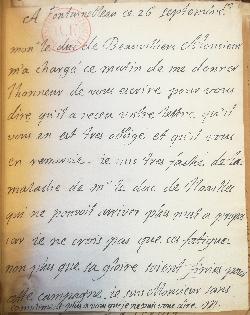 A fontainebleau ce 26 septembre
monsr le duc de Beauvilliers Monsieur
m'a chargé ce matin de me donner
l'honneur de vous escrire pour vous
dire qu'il a receu vostre lettre, qu'il
vous en est tres obligé et qu'il vous
en remercie. je suis tres faché de la
maladie de mr le duc de Noailles
qui ne pouvoit arriver plus mal a propos
car je ne crois pas que ses fatigues
non plus que sa gloire soient finies pour
cette campagne. je suis Monsieur sans